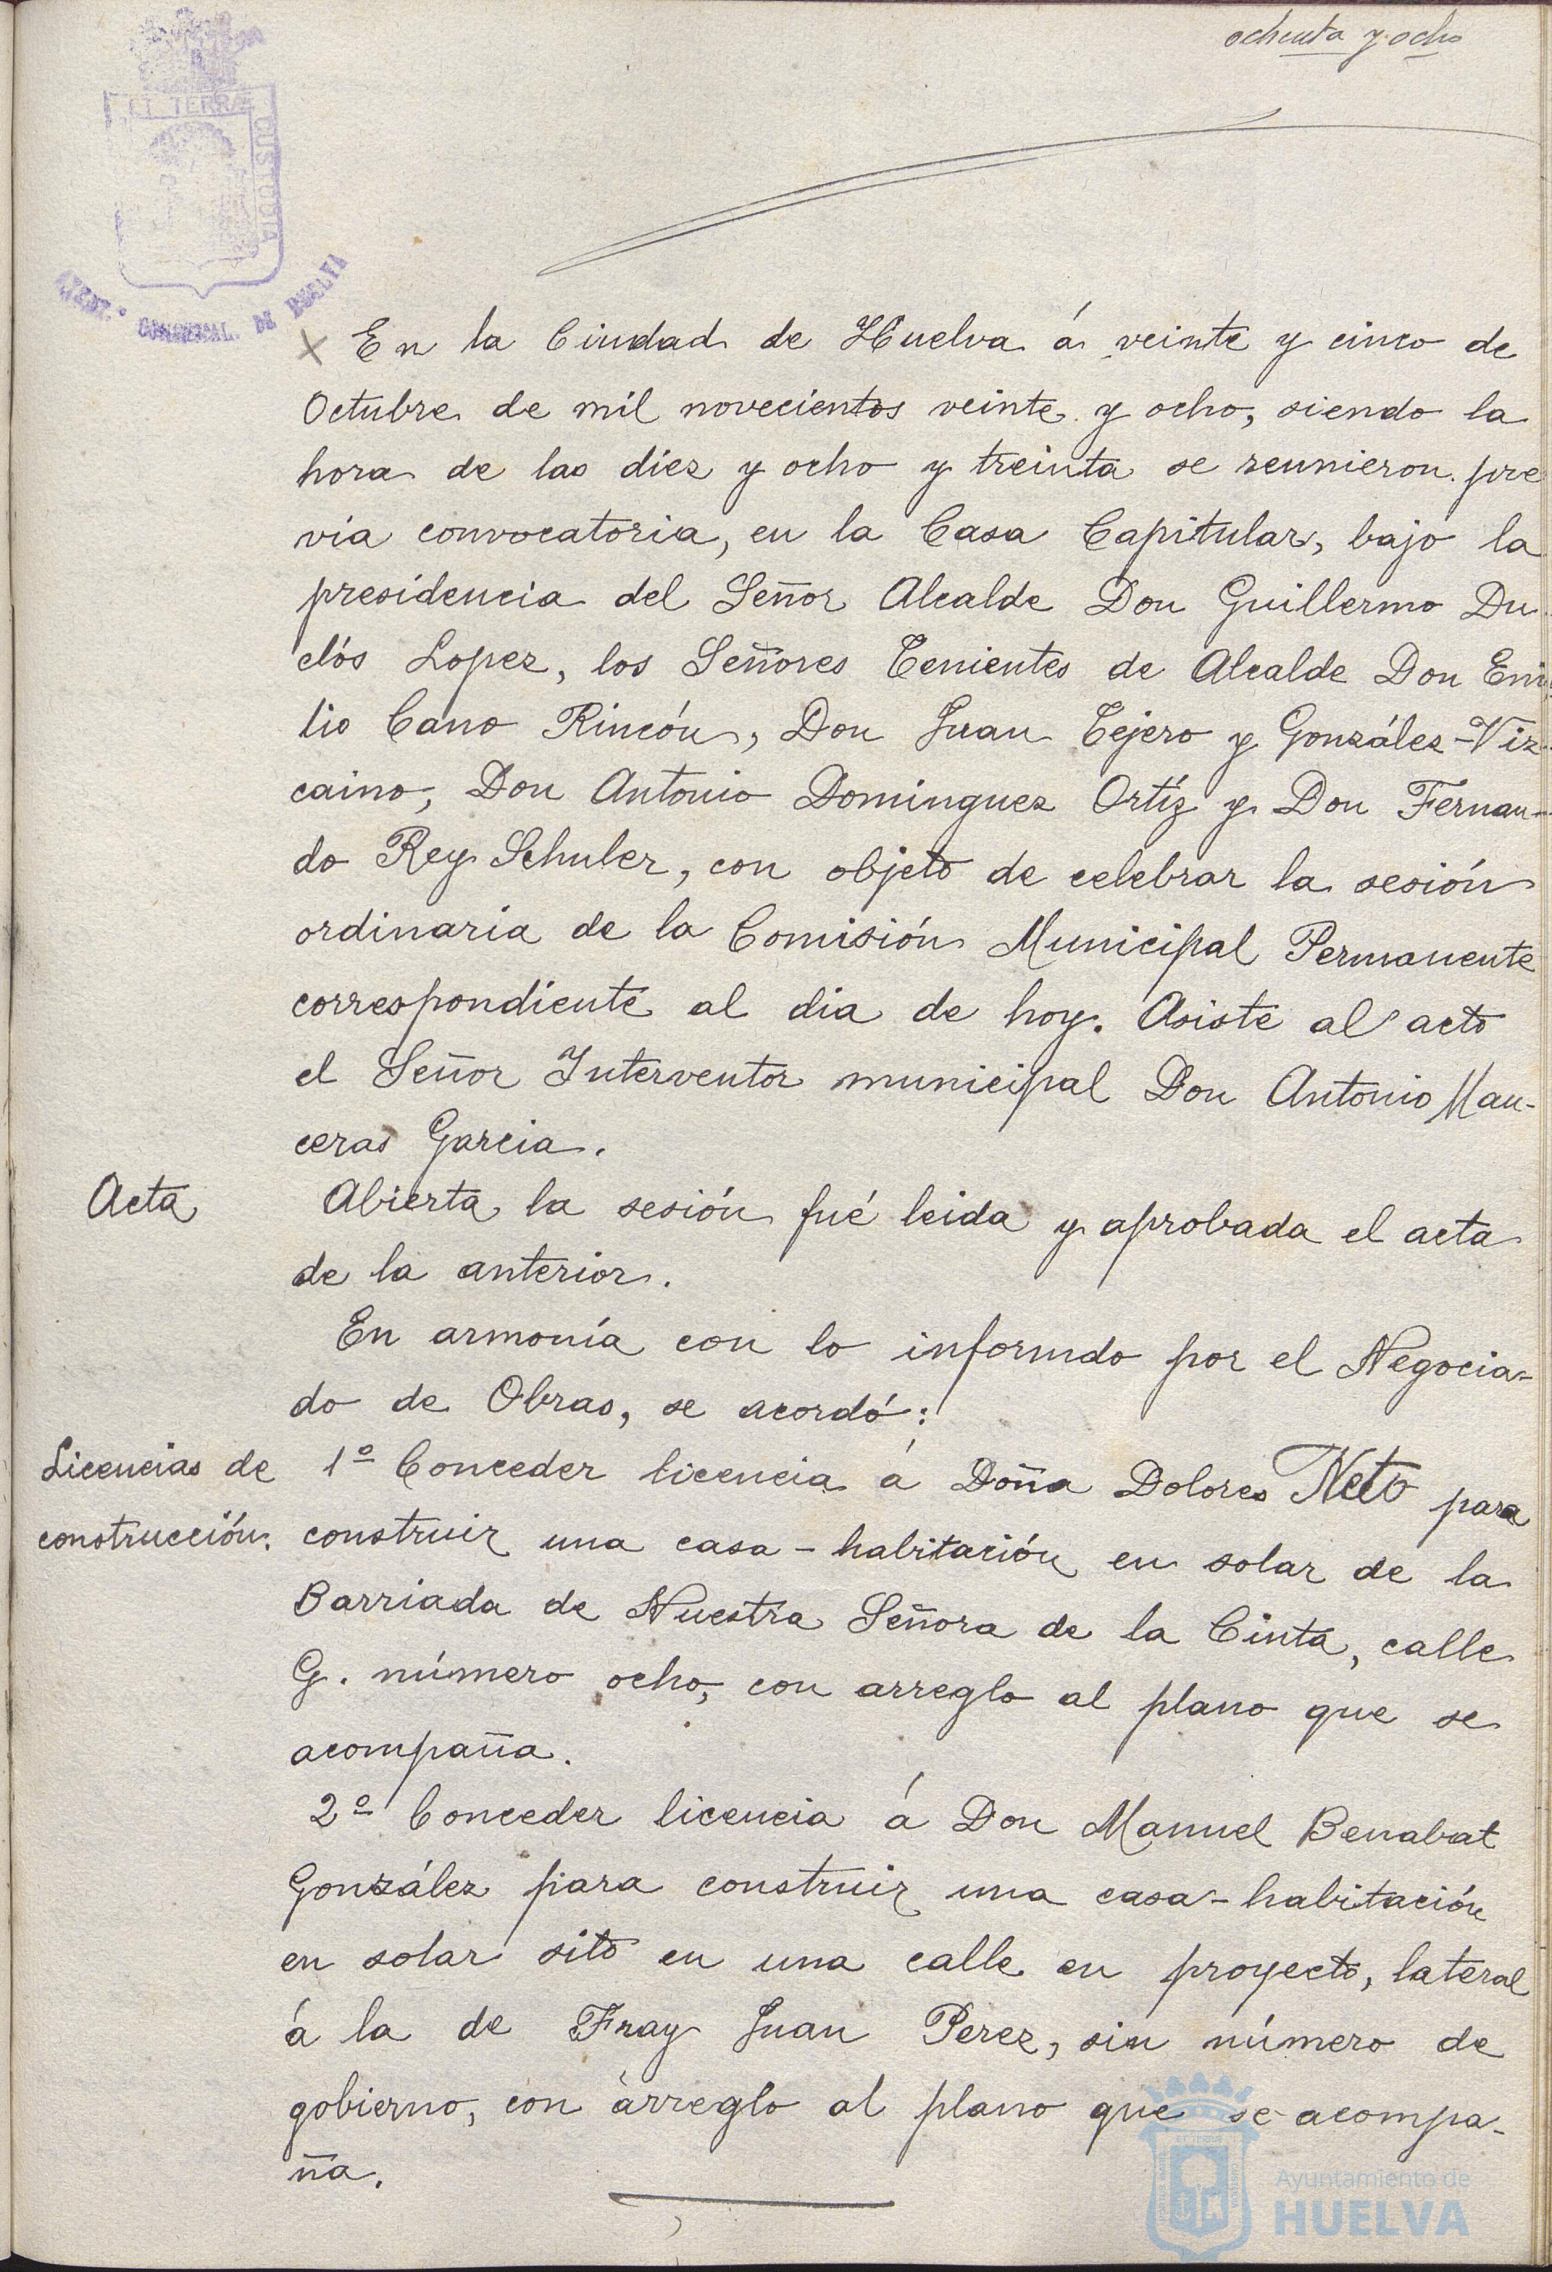 ochenta y ocho
ET TERRÆ
CUSTODIA
AYUNT.º CONSTITUCIONAL DE HUELVA
En la Ciudad de Huelva á veinte y cinco de
Octubre de mil novecientos veinte y ocho, siendo la
hora de las diez y ocho y treinta se reunieron pre
via convocatoria, en la Casa Capitular, bajo la
presidencia del Señor Alcalde Don Guillermo Du-
clós Lopez, los Señores Tenientes de Alcalde Don Emi-
lio Cano Rincón, Don Juan Tejero y González-Viz-
caino, Don Antonio Dominguez Ortíz y Don Fernan-
do Rey Schuler, con objeto de celebrar la sesión
ordinaria de la Comisión Municipal Permanente
correspondiente al dia de hoy. Asiste al acto
el Señor Interventor municipal Don Antonio Man-
ceras Garcia.
Acta
Abierta la sesión fué leida y aprobada el acta
de la anterior.
En armonía con lo informdo por el Negocia-
do de Obras, se acordó:
Licencias de
construcción.
1º Conceder licencia á Doña Dolores Neto para
construir una casa-habitación en solar de la
Barriada de Nuestra Señora de la Cinta, calle
G. número ocho, con arreglo al plano que se
acompaña.
2º Conceder licencia á Don Manuel Benabat
González para construir una casa-habitación
en solar sito en una calle en proyecto, lateral
á la de Fray Juan Perez, sin número de
gobierno, con arreglo al plano que se acompa-
ña.
Ayuntamiento de
HUELVA